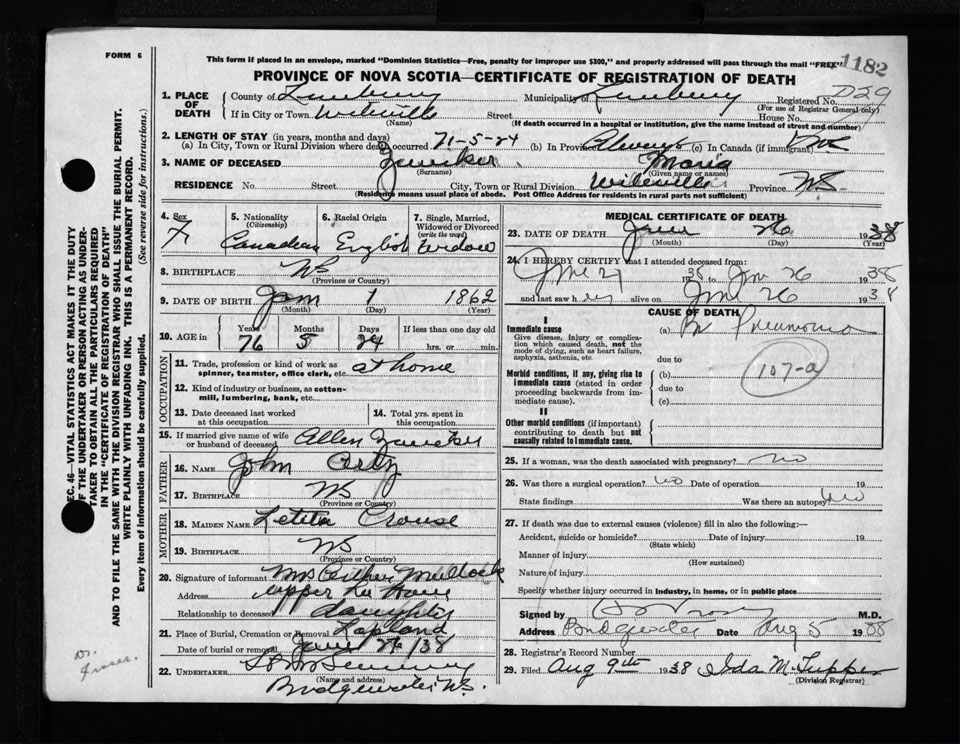 FORM 6
This form if placed in an envelope, marked "Dominion Statistics—Free, penalty for improper use $300," and properly addressed will pass through the mail "FREE"
1182
PROVINCE OF NOVA SCOTIA—CERTIFICATE OF REGISTRATION OF DEATH
1. PLACE OF DEATH County of Lunenburg Municipality of Lunenburg Registered No. D29
(For use of Registrar General only)
If in City or Town Street House No.
(Name) (If death occurred in a hospital or institution, give the name instead of street and number)
2. LENGTH OF STAY (in years, months and days)
(a) In City, Town or Rural Division where death occurred 71-5-24 (b) In Province Always (c) In Canada (if immigrant)
3. NAME OF DECEASED Zwicker Maria
(Surname) (Given name or names)
RESIDENCE No. Street City, Town or Rural Division Wileville Province NS.
(Residence means usual place of abode. Post Office Address for residents in rural parts not sufficient)
4. Sex F
5. Nationality (Citizenship) Canadian
6. Racial Origin English
7. Single, Married, Widowed or Divorced (write the word) Widow
8. BIRTHPLACE NS
(Province or Country)
9. DATE OF BIRTH Jan 1 1862
(Month) (Day) (Year)
10. AGE in Years Months Days If less than one day old
76 5 24 hrs. or min.
OCCUPATION
11. Trade, profession or kind of work as spinner, teamster, office clerk, etc. at home
12. Kind of industry or business, as cotton-mill, lumbering, bank, etc.
13. Date deceased last worked at this occupation
14. Total yrs. spent in this occupation
15. If married give name of wife or husband of deceased Allen Zwicker
FATHER
16. NAME John
17. Birthplace NS
(Province or Country)
MOTHER
18. MAIDEN NAME Letita Crouse
19. BIRTHPLACE NS
(Province or Country)
20. Signature of informant Mrs Mullock
Address upper
Relationship to deceased daughter
21. Place of Burial, Cremation or Removal Lapland
Date of burial or removal 38
22. UNDERTAKER
(Name and address)
Bridgewater NS.
MEDICAL CERTIFICATE OF DEATH
23. DATE OF DEATH June 26 1938
(Month) (Day) (Year)
24. I HEREBY CERTIFY that I attended deceased from:
June 21 1938 to Jun 26 1938
and last saw her alive on Jun 26 1938
CAUSE OF DEATH
I
Immediate cause
Give disease, injury or complication which caused death, not the mode of dying, such as heart failure, asphyxia, asthenia, etc.
(a) Br Pneumonia
due to
107-a
Morbid conditions, if any, giving rise to immediate cause (stated in order proceeding backwards from immediate cause).
(b)
due to
(c)
II
Other morbid conditions (if important) contributing to death but not causally related to immediate cause.
25. If a woman, was the death associated with pregnancy? no
26. Was there a surgical operation? no Date of operation 19
State findings Was there an autopsy? no
27. If death was due to external causes (violence) fill in also the following:—
Accident, suicide or homicide? Date of injury 19
(State which)
Manner of injury
(How sustained)
Nature of injury
Specify whether injury occurred in industry, in home, or in public place
Signed by M.D.
Address Bridgewater Date Aug 5 1938
28. Registrar's Record Number
29. Filed Aug 9th 1938 Ida M. Tupper
(Division Registrar)
SEC. 46—VITAL STATISTICS ACT MAKES IT THE DUTY
OF THE UNDERTAKER OR PERSON ACTING AS UNDERTAKER
TO OBTAIN ALL THE PARTICULARS REQUIRED
IN THE "CERTIFICATE OF REGISTRATION OF DEATH"
AND TO FILE THE SAME WITH THE DIVISION REGISTRAR WHO SHALL ISSUE THE BURIAL PERMIT.
WRITE PLAINLY WITH UNFADING INK. THIS IS A PERMANENT RECORD.
Every item of information should be carefully supplied. (See reverse side for instructions.)
Dr. Fraser.